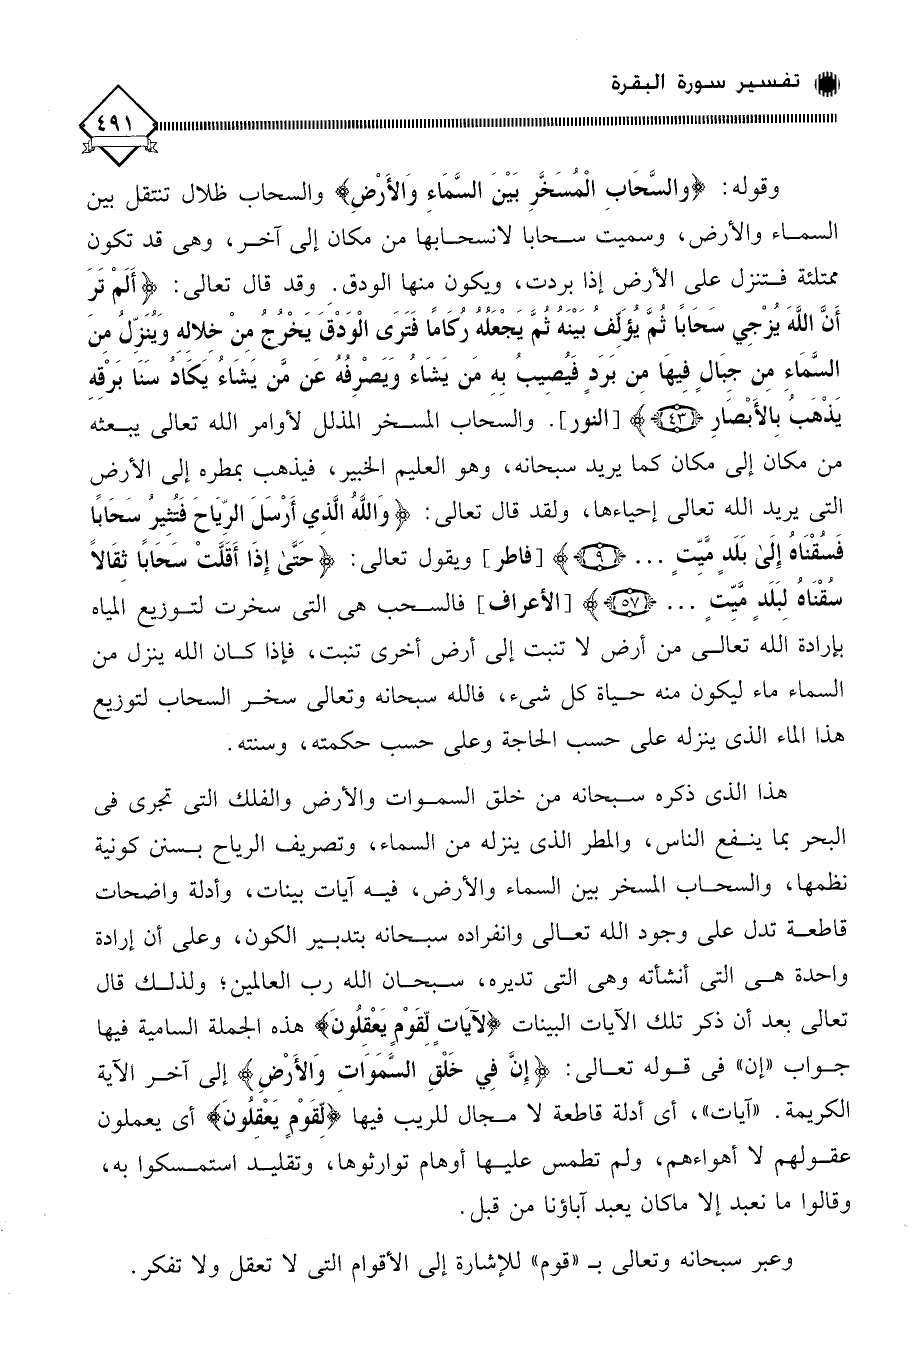 تفسير سورة البقرة
٤٩١
وقوله: ﴿وَالسَّحَابِ الْمُسَخَّرِ بَيْنَ السَّمَاءِ وَالأَرْضِ﴾ والسحاب ظلال تنتقل بين
السماء والأرض، وسميت سحابا لانسحابها من مكان إلى آخر، وهى قد تكون
ممتلئة فتنزل على الأرض إذا بردت، ويكون منها الودق. وقد قال تعالى: ﴿أَلَمْ تَرَ
أَنَّ اللَّهَ يُزْجِي سَحَابًا ثُمَّ يُؤَلِّفُ بَيْنَهُ ثُمَّ يَجْعَلُهُ رُكَامًا فَتَرَى الْوَدْقَ يَخْرُجُ مِنْ خِلالِهِ وَيُنَزِّلُ مِنَ
السَّمَاءِ مِن جِبَالٍ فِيهَا مِن بَرَدٍ فَيُصِيبُ بِهِ مَن يَشَاءُ وَيَصْرِفُهُ عَن مَّن يَشَاءُ يَكَادُ سَنَا بَرْقِهِ
يَذْهَبُ بِالأَبْصَارِ ﴿٤٣﴾﴾ [النور]. والسحاب المسخر المذلل لأوامر الله تعالى يبعثه
من مكان إلى مكان كما يريد سبحانه، وهو العليم الخبير، فيذهب بمطره إلى الأرض
التى يريد الله تعالى إحياءها، ولقد قال تعالى: ﴿وَاللَّهُ الَّذِي أَرْسَلَ الرِّيَاحَ فَتُثِيرُ سَحَابًا
فَسُقْنَاهُ إِلَىٰ بَلَدٍ مَّيِّتٍ ... ﴿٩﴾﴾ [فاطر] ويقول تعالى: ﴿حَتَّىٰ إِذَا أَقَلَّتْ سَحَابًا ثِقَالاً
سُقْنَاهُ لِبَلَدٍ مَّيِّتٍ ... ﴿٥٧﴾﴾ [الأعراف] فالسحب هى التى سخرت لتوزيع المياه
بإرادة الله تعالى من أرض لا تنبت إلى أرض أخرى تنبت، فإذا كان الله ينزل من
السماء ماء ليكون منه حياة كل شىء، فالله سبحانه وتعالى سخر السحاب لتوزيع
هذا الماء الذى ينزله على حسب الحاجة وعلى حسب حكمته، وسنته.
هذا الذى ذكره سبحانه من خلق السموات والأرض والفلك التى تجرى فى
البحر بما ينفع الناس، والمطر الذى ينزله من السماء، وتصريف الرياح بسنن كونية
نظمها، والسحاب المسخر بين السماء والأرض، فيه آيات بينات، وأدلة واضحات
قاطعة تدل على وجود الله تعالى وانفراده سبحانه بتدبير الكون، وعلى أن إرادة
واحدة هى التى أنشأته وهى التى تديره، سبحان الله رب العالمين؛ ولذلك قال
تعالى بعد أن ذكر تلك الآيات البينات ﴿لآيَاتٍ لِّقَوْمٍ يَعْقِلُونَ﴾ هذه الجملة السامية فيها
جواب «إن» فى قوله تعالى: ﴿إِنَّ فِي خَلْقِ السَّمَوَاتِ وَالأَرْضِ﴾ إلى آخر الآية
الكريمة. «آيات»، أى أدلة قاطعة لا مجال للريب فيها ﴿لِّقَوْمٍ يَعْقِلُونَ﴾ أى يعملون
عقولهم لا أهواءهم، ولم تطمس عليها أوهام توارثوها، وتقليد استمسكوا به،
وقالوا ما نعبد إلا ماكان يعبد آباؤنا من قبل.
وعبر سبحانه وتعالى بـ «قوم» للإشارة إلى الأقوام التى لا تعقل ولا تفكر.